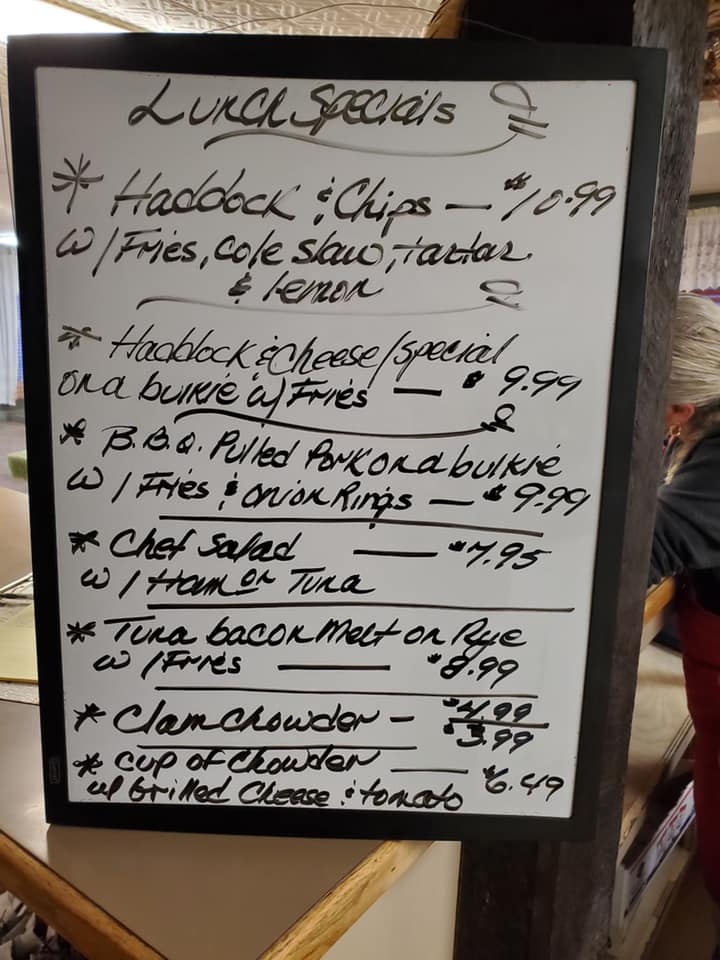 Lunch Specials
* Haddock & Chips — $10.99
w/Fries, cole slaw, tartar
& lemon
* Haddock & Cheese/special
on a bulkie w/Fries — $9.99
* B.B.Q. Pulled Pork on a bulkie
w/Fries & onion Rings — $9.99
* Chef Salad — $7.95
w/Ham or Tuna
* Tuna bacon Melt on Rye
w/Fries — $8.99
* Clam Chowder - $4.99
$3.99
* Cup of Chowder — $6.49
w/ Grilled Cheese & tomato